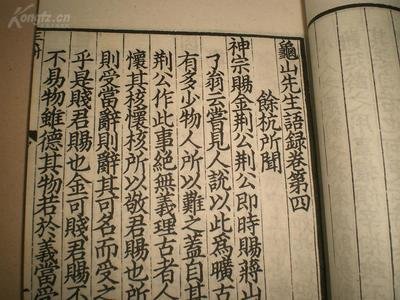 Kongfz.cn
龜山先生語録卷第四
餘杭所聞
神宗賜金荆公荆公即時賜蔣山
了翁云嘗見人說以此爲曠古
有多少物人所以難之蓋自其
荆公作此事絶無義理古者人
懷其核懷核所以敬君賜也所
則受當辭則辭其可名而受之
乎是賤君賜也金可賤君賜不
不易物雖德其物若於義當受